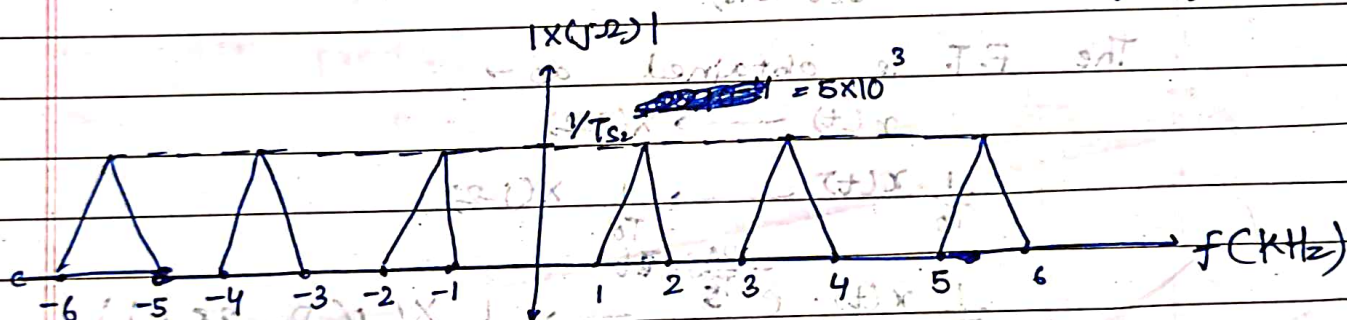 |X(jΩ)|
1/Ts₂ = 5×10³
f(KHz)
-6 -5 -4 -3 -2 -1 1 2 3 4 5 6